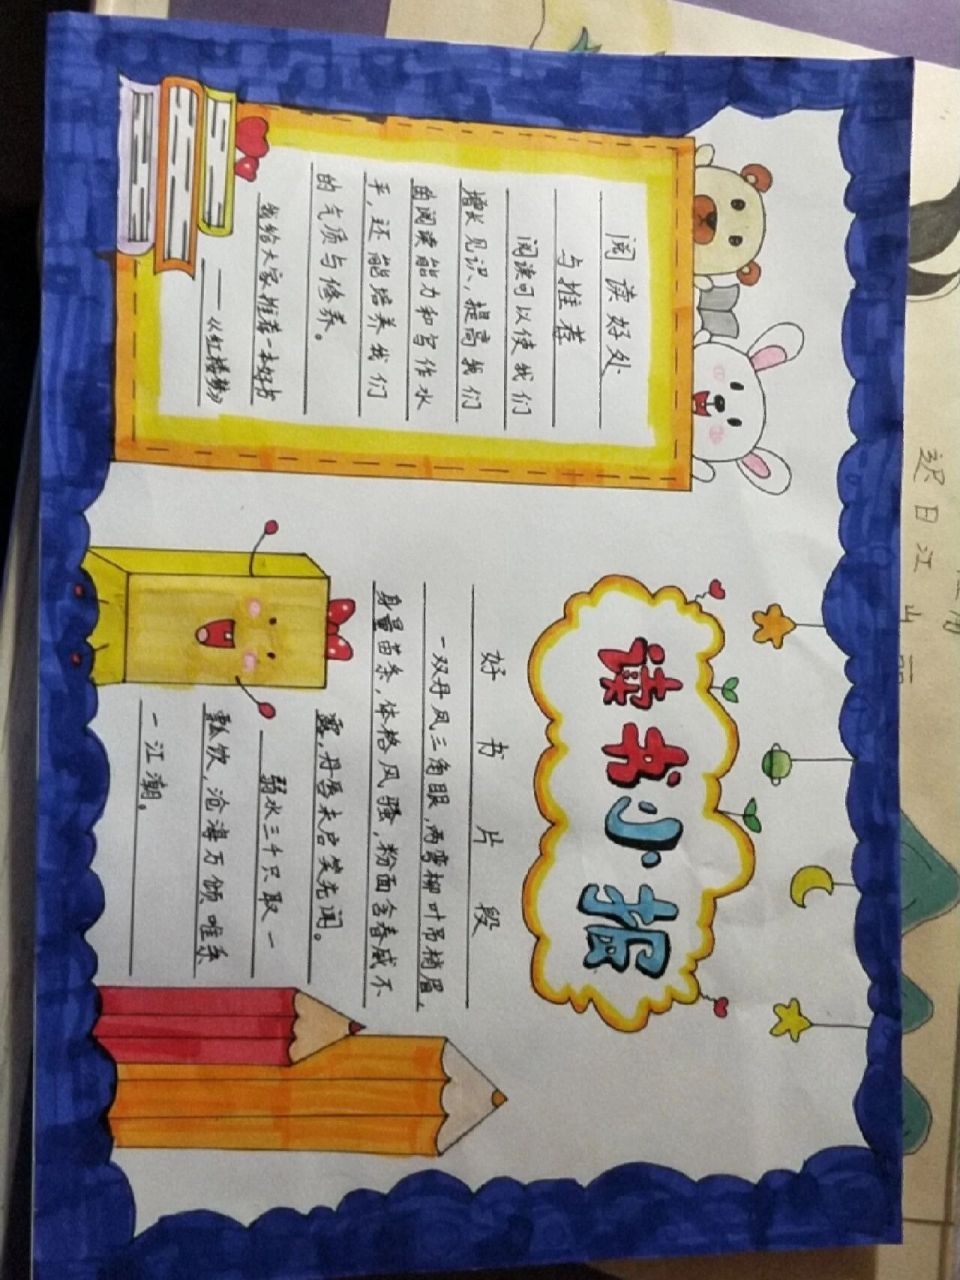 读书小报
阅读好处
与推荐
阅读可以使我们
增长见识，提高我们
的阅读能力和写作水
平，还能培养我们
的气质与修养。
我给大家推荐一本好书
——《红楼梦》
好书片段
一双丹凤三角眼，两弯柳叶吊梢眉，
身量苗条，体格风骚，粉面含春威不
露，丹唇未启笑先闻。
弱水三千只取一
瓢饮，沧海万顷唯系
一江潮。
迟日江山丽